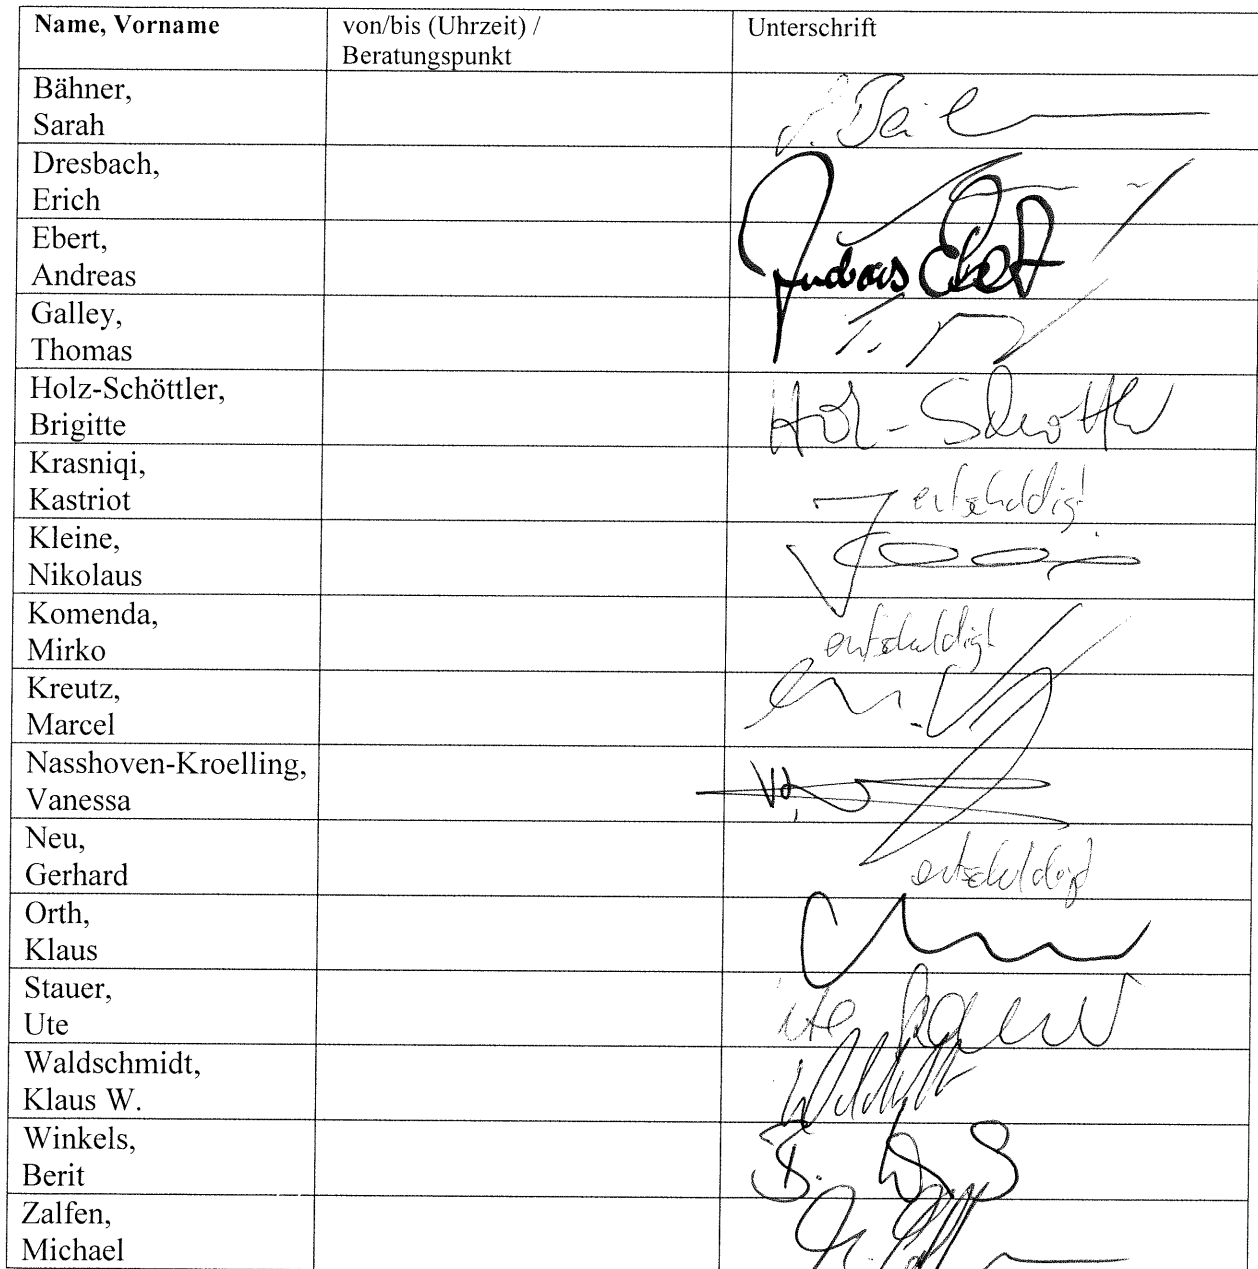 Name, Vorname
von/bis (Uhrzeit) /
Beratungspunkt
Unterschrift
Bähner,
Sarah
Dresbach,
Erich
Ebert,
Andreas
Andreas Ebert
Galley,
Thomas
Holz-Schöttler,
Brigitte
Holz-Schöttler
Krasniqi,
Kastriot
entschuldigt
Kleine,
Nikolaus
Komenda,
Mirko
entschuldigt
Kreutz,
Marcel
Nasshoven-Kroelling,
Vanessa
Neu,
Gerhard
entschuldigt
Orth,
Klaus
Stauer,
Ute
Ute
Waldschmidt,
Klaus W.
Winkels,
Berit
Zalfen,
Michael